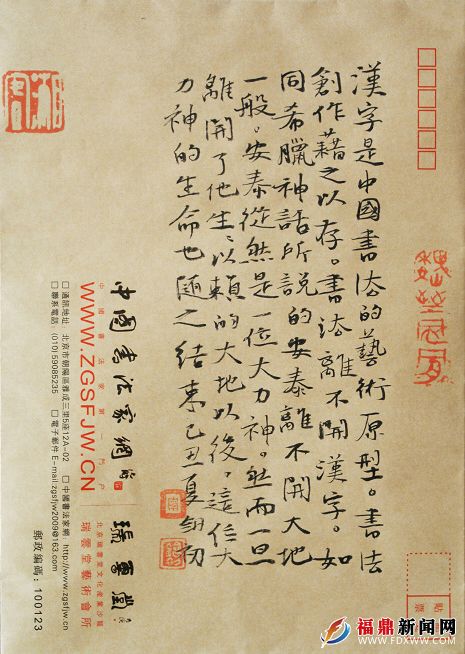 漢字是中國書法的藝術原型。書法
創作藉之以存。書法離不開漢字。如
同希臘神話所說的安泰離不開大地
一般。安泰從然是一位大力神。然而一旦
離開了他生以賴的大地以後。這位大
力神的生命也隨之结束己丑夏
中國書法家網
中國書法家第一門户
WWW.ZGSFJW.CN
□ 通訊地址 北京市朝陽區雅成三里5座12A-02 □ 中國書法家網: http://www.zgsfjw.cn
□ 聯系電話 (010)59085235 □ 電子郵件 E-mail: zgsfjw2009@163.com
瑞雲堂
瑞雲堂藝術會所
郵政編碼: 100123
貼
票
福鼎新闻网
WWW.FDXWW.COM